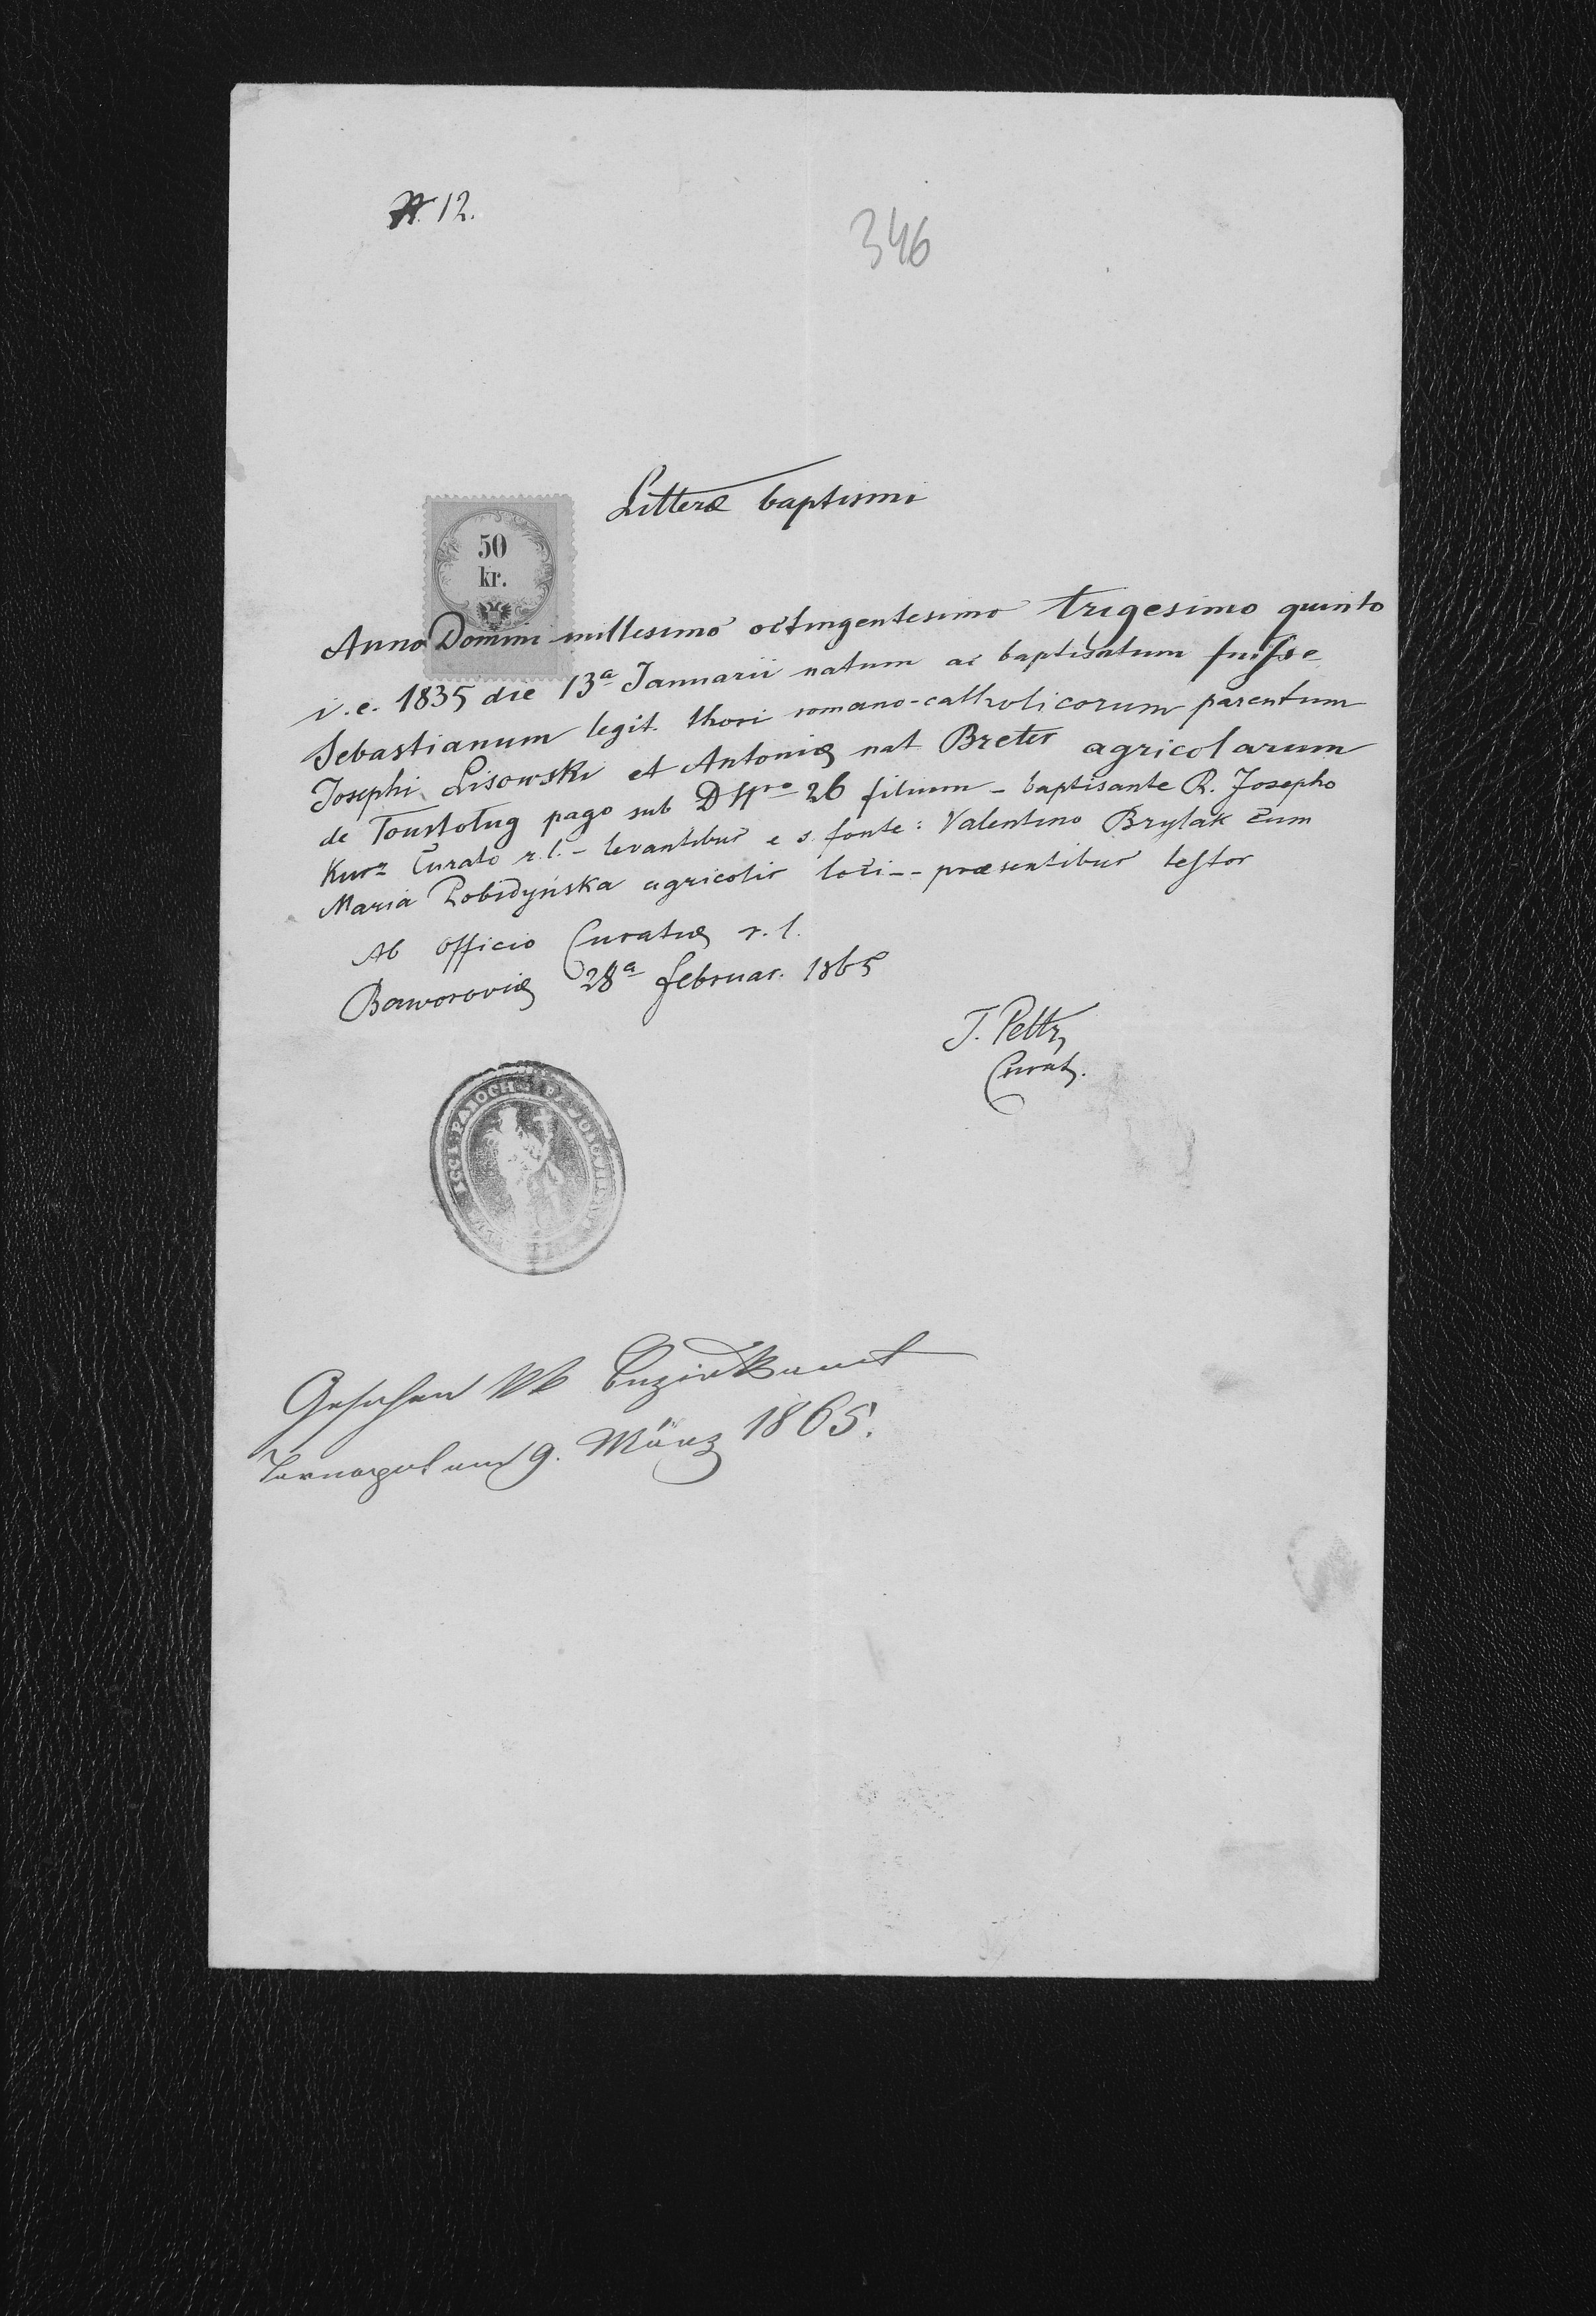 N 12.
346
Litteræ baptismi
50
kr.
Anno Domini millesimo octingentesimo trigesimo quinto
i.e. 1835 die 13ª Januarii natum ac baptisatum fuisse
Sebastianum legit. thori romano-catholicorum parentum
Josephi Lisowski et Antoniæ nat Breter agricolarum
de Toustoług pago sub D Nro 26 filium - baptisante R. Josepho
Kurz Curato r.l. - levantibus e s. fonte: Valentino Brylak cum
Maria Pobidyńska agricolis loci -- præsentibus testor
Ab officio Curatiæ r.l.
Baworoviæ 28ª februar. 1865
J. Peltz
Curat.
Gesehen kk Bezirksamt
Tarnopol am 9. März 1865.